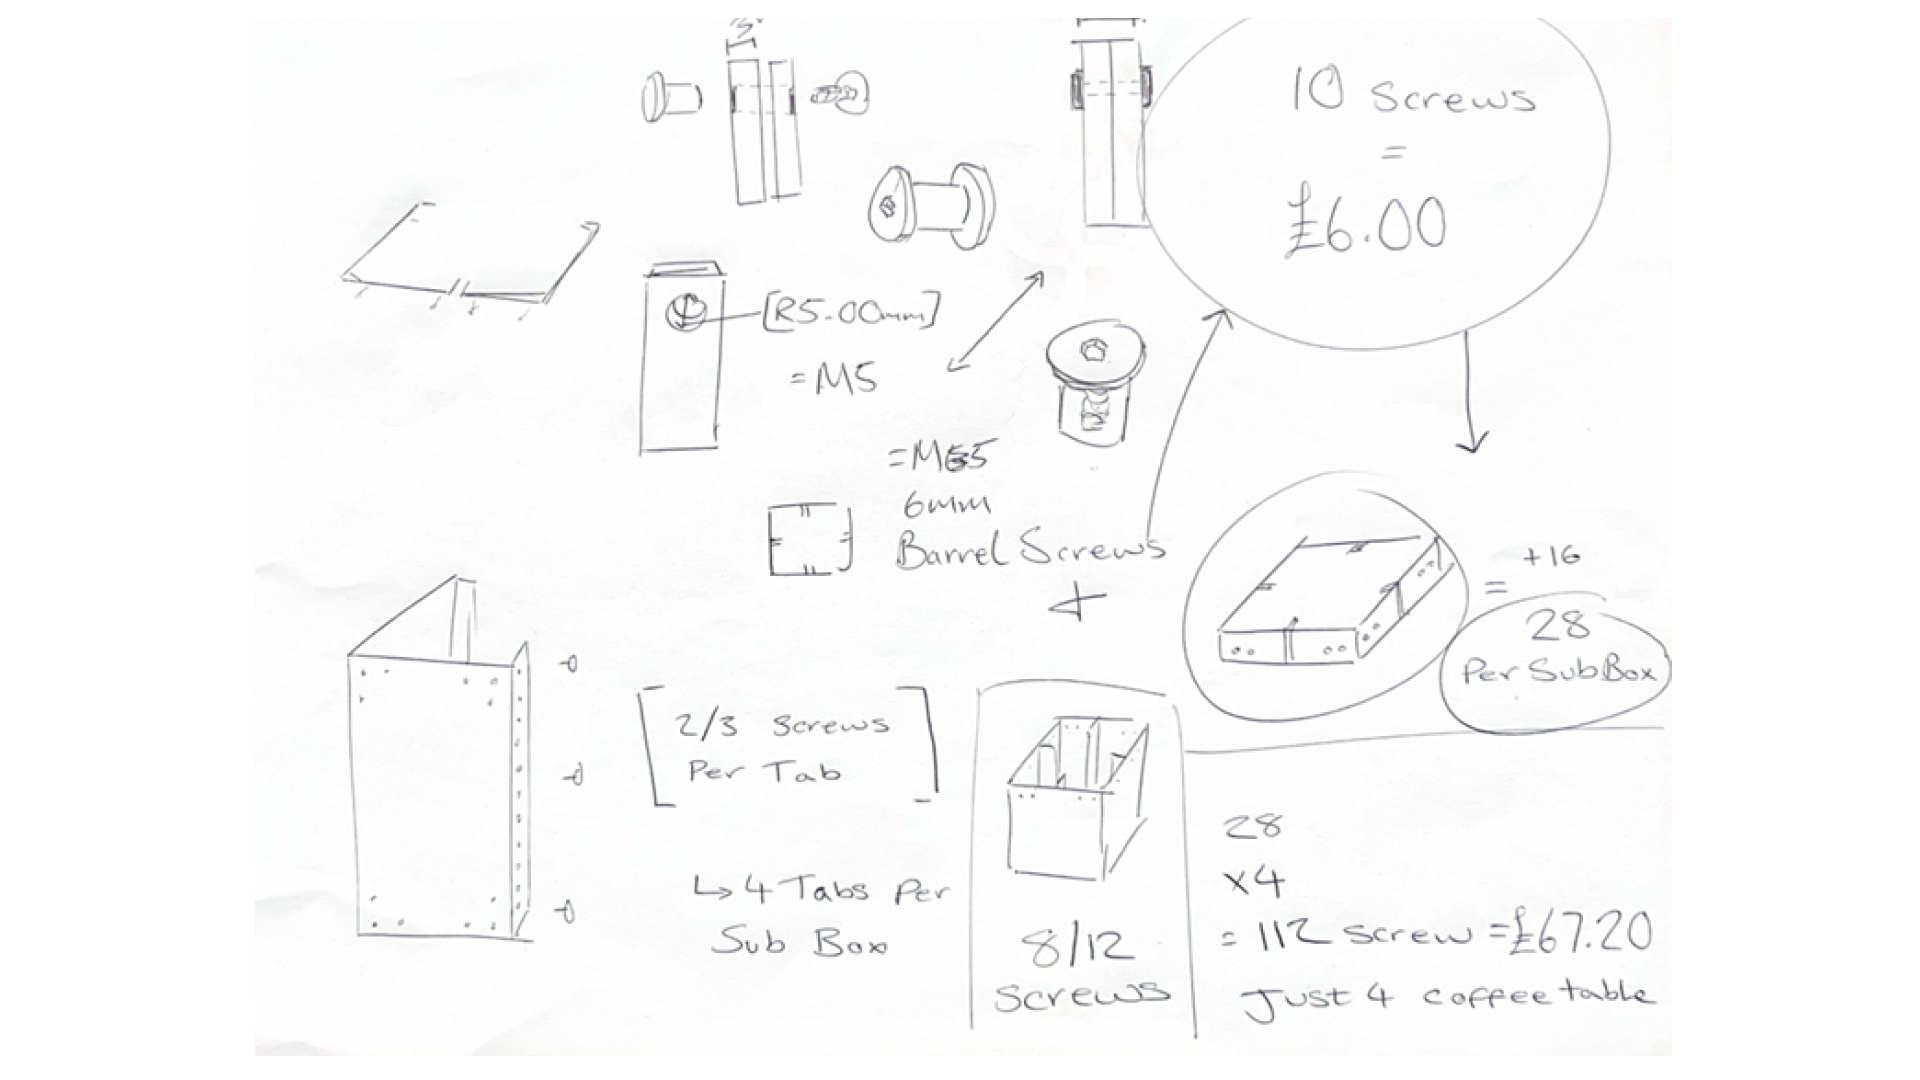 10 screws
=
£6.00
[R5.00mm]
= M5
= M5
6mm
Barrel Screws
+
+16
=
28
Per Sub Box
[2/3 Screws
Per Tab]
↳ 4 Tabs Per
Sub Box
8/12
Screws
28
x4
= 112 screw = £67.20
Just 4 coffee table